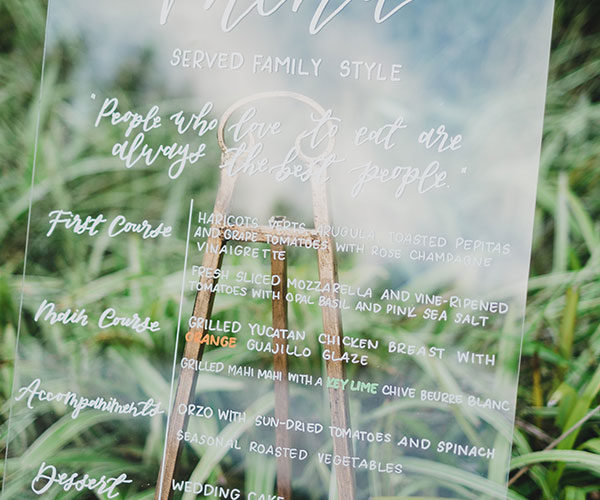 Menu
SERVED FAMILY STYLE
"People who love to eat are
always the best people."
First Course
HARICOTS VERTS, ARUGULA, TOASTED PEPITAS
AND GRAPE TOMATOES WITH ROSE CHAMPAGNE
VINAIGRETTE
FRESH SLICED MOZZARELLA AND VINE-RIPENED
TOMATOES WITH OPAL BASIL AND PINK SEA SALT
Main Course
GRILLED YUCATAN CHICKEN BREAST WITH
ORANGE GUAJILLO GLAZE
GRILLED MAHI MAHI WITH A KEY LIME CHIVE BEURRE BLANC
Accompaniments
ORZO WITH SUN-DRIED TOMATOES AND SPINACH
SEASONAL ROASTED VEGETABLES
Dessert
WEDDING CAKE